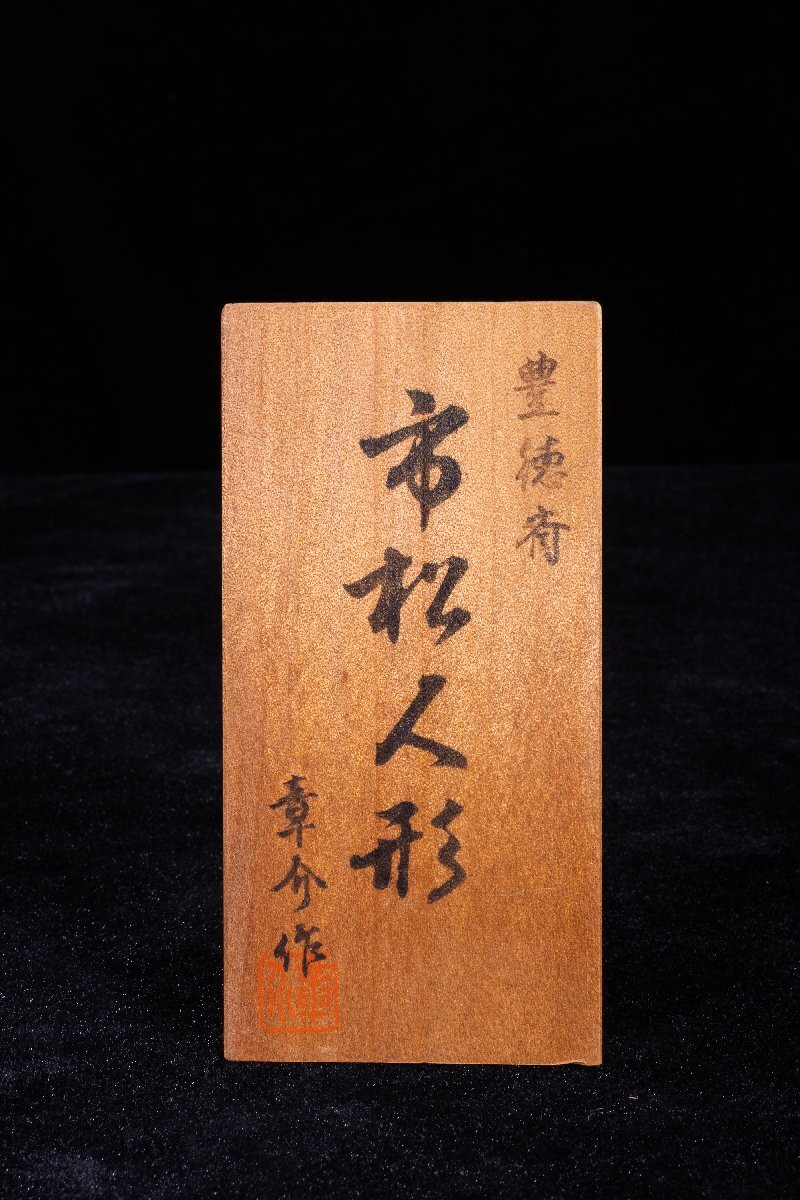 豊徳斎
市松人形
章介作